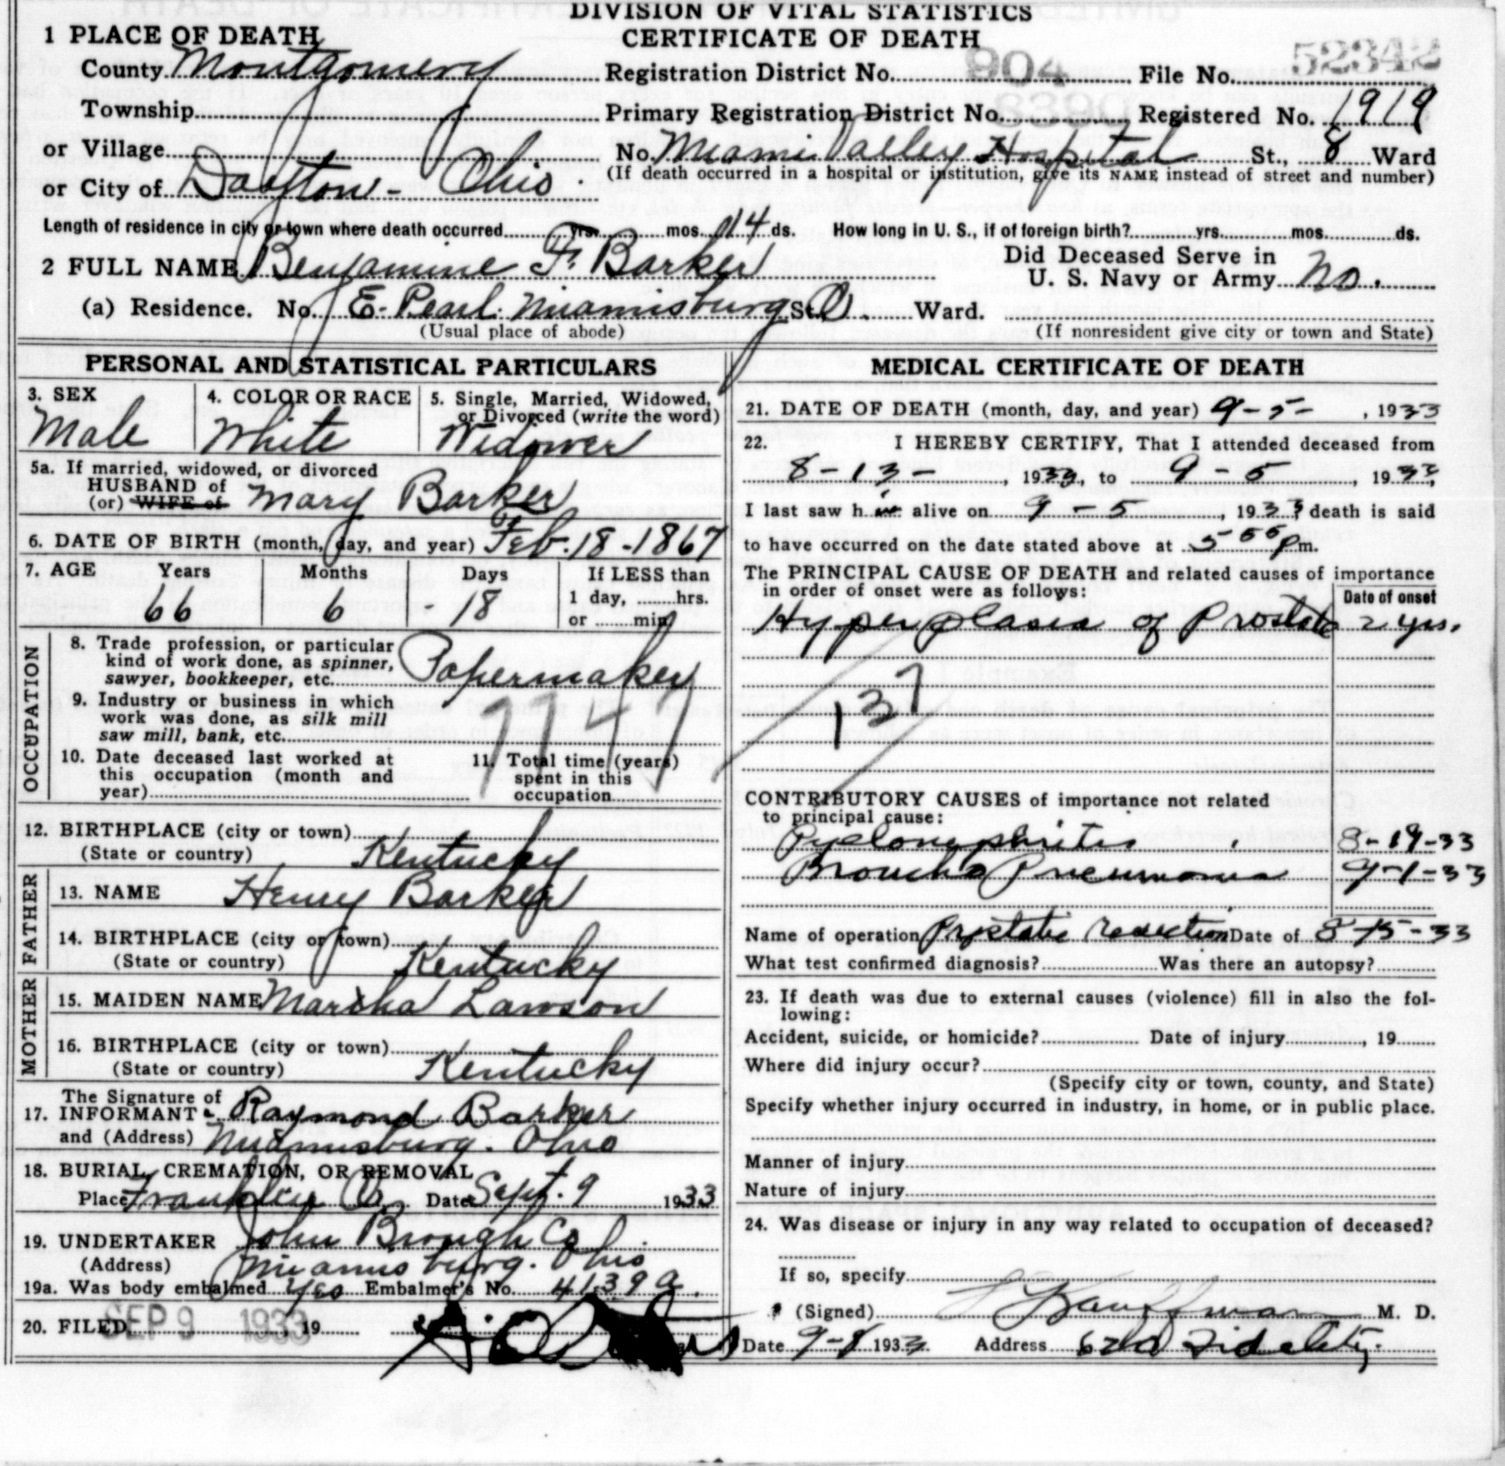 DIVISION OF VITAL STATISTICS
CERTIFICATE OF DEATH
1 PLACE OF DEATH
County Montgomery Registration District No. 904 File No. 52342
Township Primary Registration District No. 8390 Registered No. 1919
or Village No. Miami Valley Hospital St., 8 Ward
or City of Dayton - Ohio. (If death occurred in a hospital or institution, give its NAME instead of street and number)
Length of residence in city or town where death occurred yrs. mos. 14 ds. How long in U. S., if of foreign birth? yrs. mos. ds.
2 FULL NAME Benjamine F. Barker Did Deceased Serve in U. S. Navy or Army No.
(a) Residence. No. E. Pearl. Miamisburg St. O. Ward.
(Usual place of abode) (If nonresident give city or town and State)
PERSONAL AND STATISTICAL PARTICULARS
3. SEX 4. COLOR OR RACE 5. Single, Married, Widowed, or Divorced (write the word)
Male White Widower
5a. If married, widowed, or divorced
HUSBAND of
(or) WIFE of Mary Barker
6. DATE OF BIRTH (month, day, and year) Feb. 18 - 1867
7. AGE Years Months Days If LESS than
1 day, hrs.
66 6 - 18 or min.
OCCUPATION
8. Trade profession, or particular
kind of work done, as spinner,
sawyer, bookkeeper, etc. Papermaker
9. Industry or business in which
work was done, as silk mill
saw mill, bank, etc.
10. Date deceased last worked at
this occupation (month and
year)
11. Total time (years)
spent in this
occupation
12. BIRTHPLACE (city or town)
(State or country) Kentucky
FATHER
13. NAME Henry Barker
14. BIRTHPLACE (city or town)
(State or country) Kentucky
MOTHER
15. MAIDEN NAME Martha Lawson
16. BIRTHPLACE (city or town)
(State or country) Kentucky
The Signature of
17. INFORMANT Raymond Barker
and (Address) Miamisburg. Ohio
18. BURIAL, CREMATION, OR REMOVAL
Place Franklin O. Date Sept. 9 1933
19. UNDERTAKER John Brough Co.
(Address) Miamisburg. Ohio
19a. Was body embalmed Yes Embalmer's No. 4139 a.
20. FILED SEP 9 1933 19
MEDICAL CERTIFICATE OF DEATH
21. DATE OF DEATH (month, day, and year) 9-5- , 1933
22. I HEREBY CERTIFY, That I attended deceased from
8-13- , 1933, to 9-5 , 1933,
I last saw him alive on 9-5 , 1933 death is said
to have occurred on the date stated above at 5 55 Pm.
The PRINCIPAL CAUSE OF DEATH and related causes of importance
in order of onset were as follows: Date of onset
Hyperplasia of Prostate 2 yrs.
137
CONTRIBUTORY CAUSES of importance not related
to principal cause:
Pyelonephritis 8-19-33
Broncho Pneumonia 9-1-33
Name of operation Prostatic resection Date of 8-15-33
What test confirmed diagnosis? Was there an autopsy?
23. If death was due to external causes (violence) fill in also the fol-
lowing:
Accident, suicide, or homicide? Date of injury , 19
Where did injury occur?
(Specify city or town, county, and State)
Specify whether injury occurred in industry, in home, or in public place.
Manner of injury
Nature of injury
24. Was disease or injury in any way related to occupation of deceased?
If so, specify
(Signed) Kauffman M. D.
Date 9-8 1933 Address Fidelity.